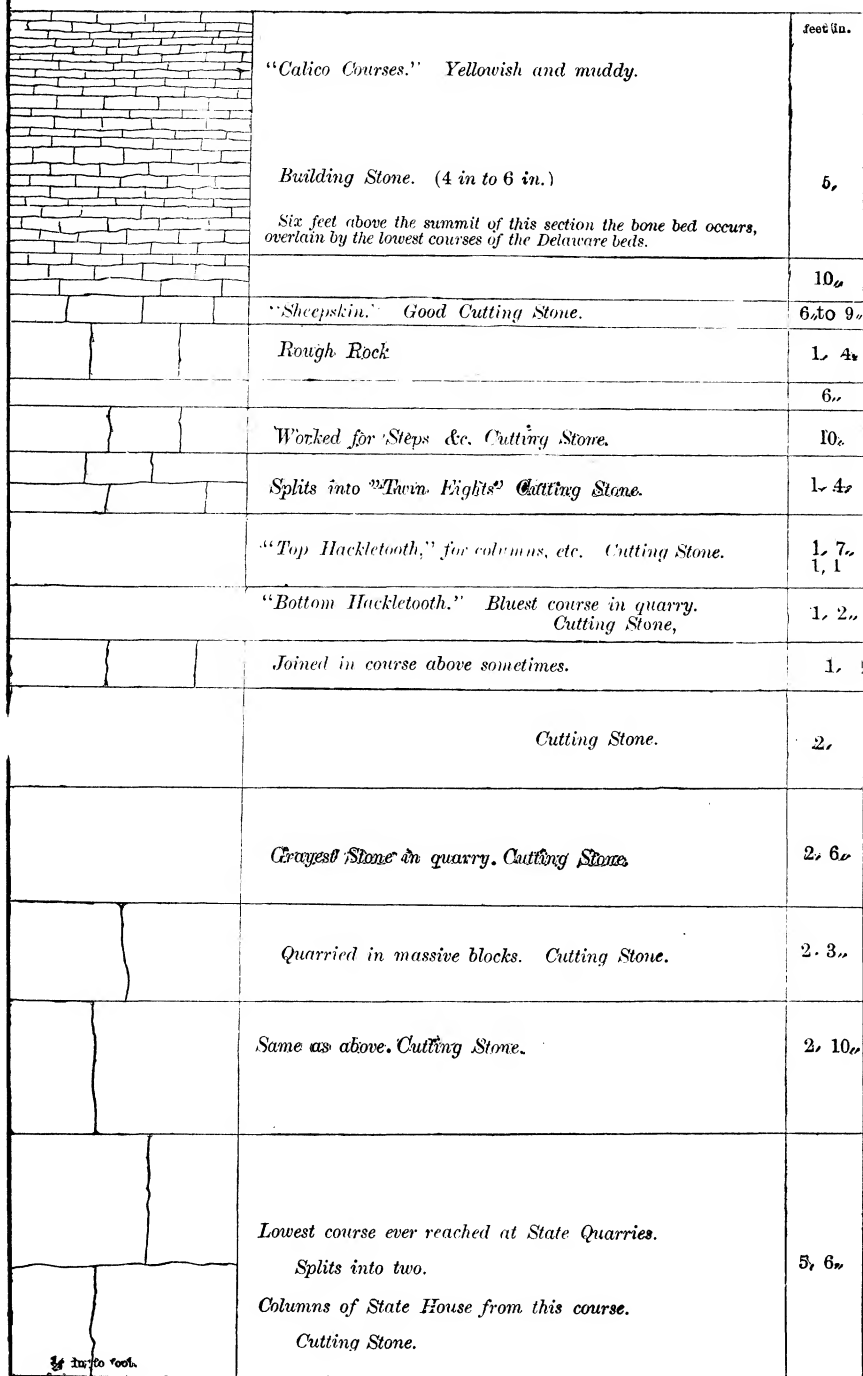 feet in.
"Calico Courses." Yellowish and muddy.
Building Stone. (4 in to 6 in.) 5,
Six feet above the summit of this section the bone bed occurs,
overlain by the lowest courses of the Delaware beds.
10,,
"Sheepskin." Good Cutting Stone. 6,,to 9,,
Rough Rock 1, 4,,
6,,
Worked for Steps &c. Cutting Stone. 10,,
Splits into "Twin Eights" Cutting Stone. 1, 4,,
"Top Hackletooth," for columns, etc. Cutting Stone. 1, 7,,
1, 1
"Bottom Hackletooth." Bluest course in quarry. 1, 2,,
Cutting Stone,
Joined in course above sometimes. 1,
Cutting Stone. 2,
Grayest Stone in quarry. Cutting Stone. 2, 6,,
Quarried in massive blocks. Cutting Stone. 2. 3,,
Same as above. Cutting Stone. 2, 10,,
Lowest course ever reached at State Quarries.
Splits into two. 5, 6,,
Columns of State House from this course.
Cutting Stone.
in. to foot.